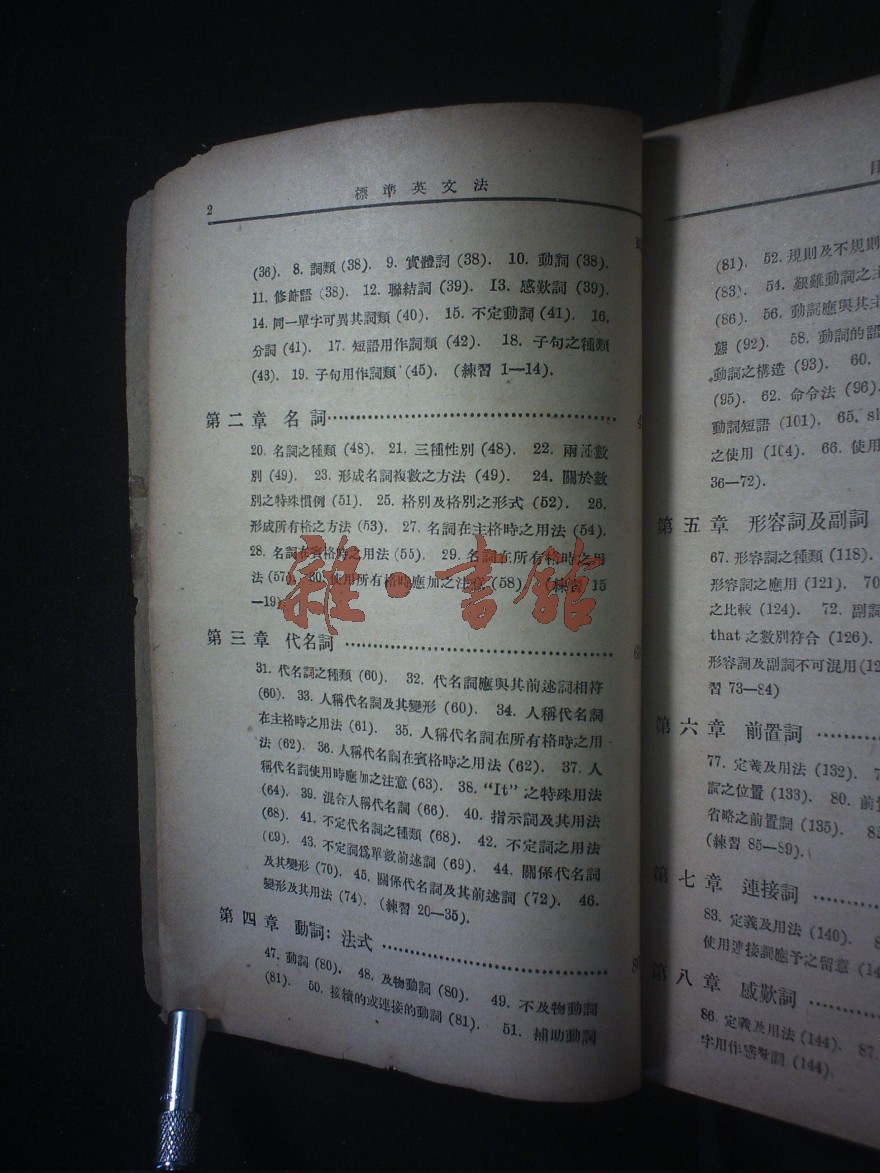 2
標準英文法
(36). 8. 詞類 (38). 9. 實體詞 (38). 10. 動詞 (38).
11. 修飾語 (38). 12. 聯結詞 (39). 13. 感歎詞 (39).
14. 同一單字可異其詞類 (40). 15. 不定動詞 (41). 16.
分詞 (41). 17. 短語用作詞類 (42). 18. 子句之種類
(43). 19. 子句用作詞類 (45). (練習 1—14).
第二章 名詞
20. 名詞之種類 (48). 21. 三種性別 (48). 22. 兩種數
別 (49). 23. 形成名詞複數之方法 (49). 24. 關於數
別之特殊慣例 (51). 25. 格別及格別之形式 (52). 26.
形成所有格之方法 (53). 27. 名詞在主格時之用法 (54).
28. 名詞在賓格時之用法 (55). 29. 名詞在所有格時之用
法 (57). 30. 使用所有格時應加之注意 (58). (練習 15
—19)
雜·書館
第三章 代名詞
31. 代名詞之種類 (60). 32. 代名詞應與其前述詞相符
(60). 33. 人稱代名詞及其變形 (60). 34. 人稱代名詞
在主格時之用法 (61). 35. 人稱代名詞在所有格時之用
法 (62). 36. 人稱代名詞在賓格時之用法 (62). 37. 人
稱代名詞使用時應加之注意 (63). 38. “It” 之特殊用法
(64). 39. 混合人稱代名詞 (66). 40. 指示詞及其用法
(68). 41. 不定代名詞之種類 (68). 42. 不定詞之用法
(69). 43. 不定詞爲單數前述詞 (69). 44. 關係代名詞
及其變形 (70). 45. 關係代名詞及其前述詞 (72). 46.
變形及其用法 (74). (練習 20—35).
第四章 動詞: 法式
47. 動詞 (80). 48. 及物動詞 (80). 49. 不及物動詞
(81). 50. 接續的或連接的動詞 (81). 51. 補助動詞
(81). 52. 規則及不規則
(83). 54. 艱難動詞之主
(86). 56. 動詞應與其主
態 (92). 58. 動詞的語
動詞之構造 (93). 60.
(95). 62. 命令法 (96).
動詞短語 (101). 65.
之使用 (104). 66. 使用
36—72).
第五章 形容詞及副詞
67. 形容詞之種類 (118).
形容詞之應用 (121). 70
之比較 (124). 72. 副詞
that 之數別符合 (126).
形容詞及副詞不可混用
習 73—84)
第六章 前置詞
77. 定義及用法 (132).
詞之位置 (133). 80. 前置
省略之前置詞 (135).
(練習 85—89).
第七章 連接詞
83. 定義及用法 (140).
使用連接詞應予之留意
第八章 感歎詞
86. 定義及用法 (144). 87.
字用作感歎詞 (144).